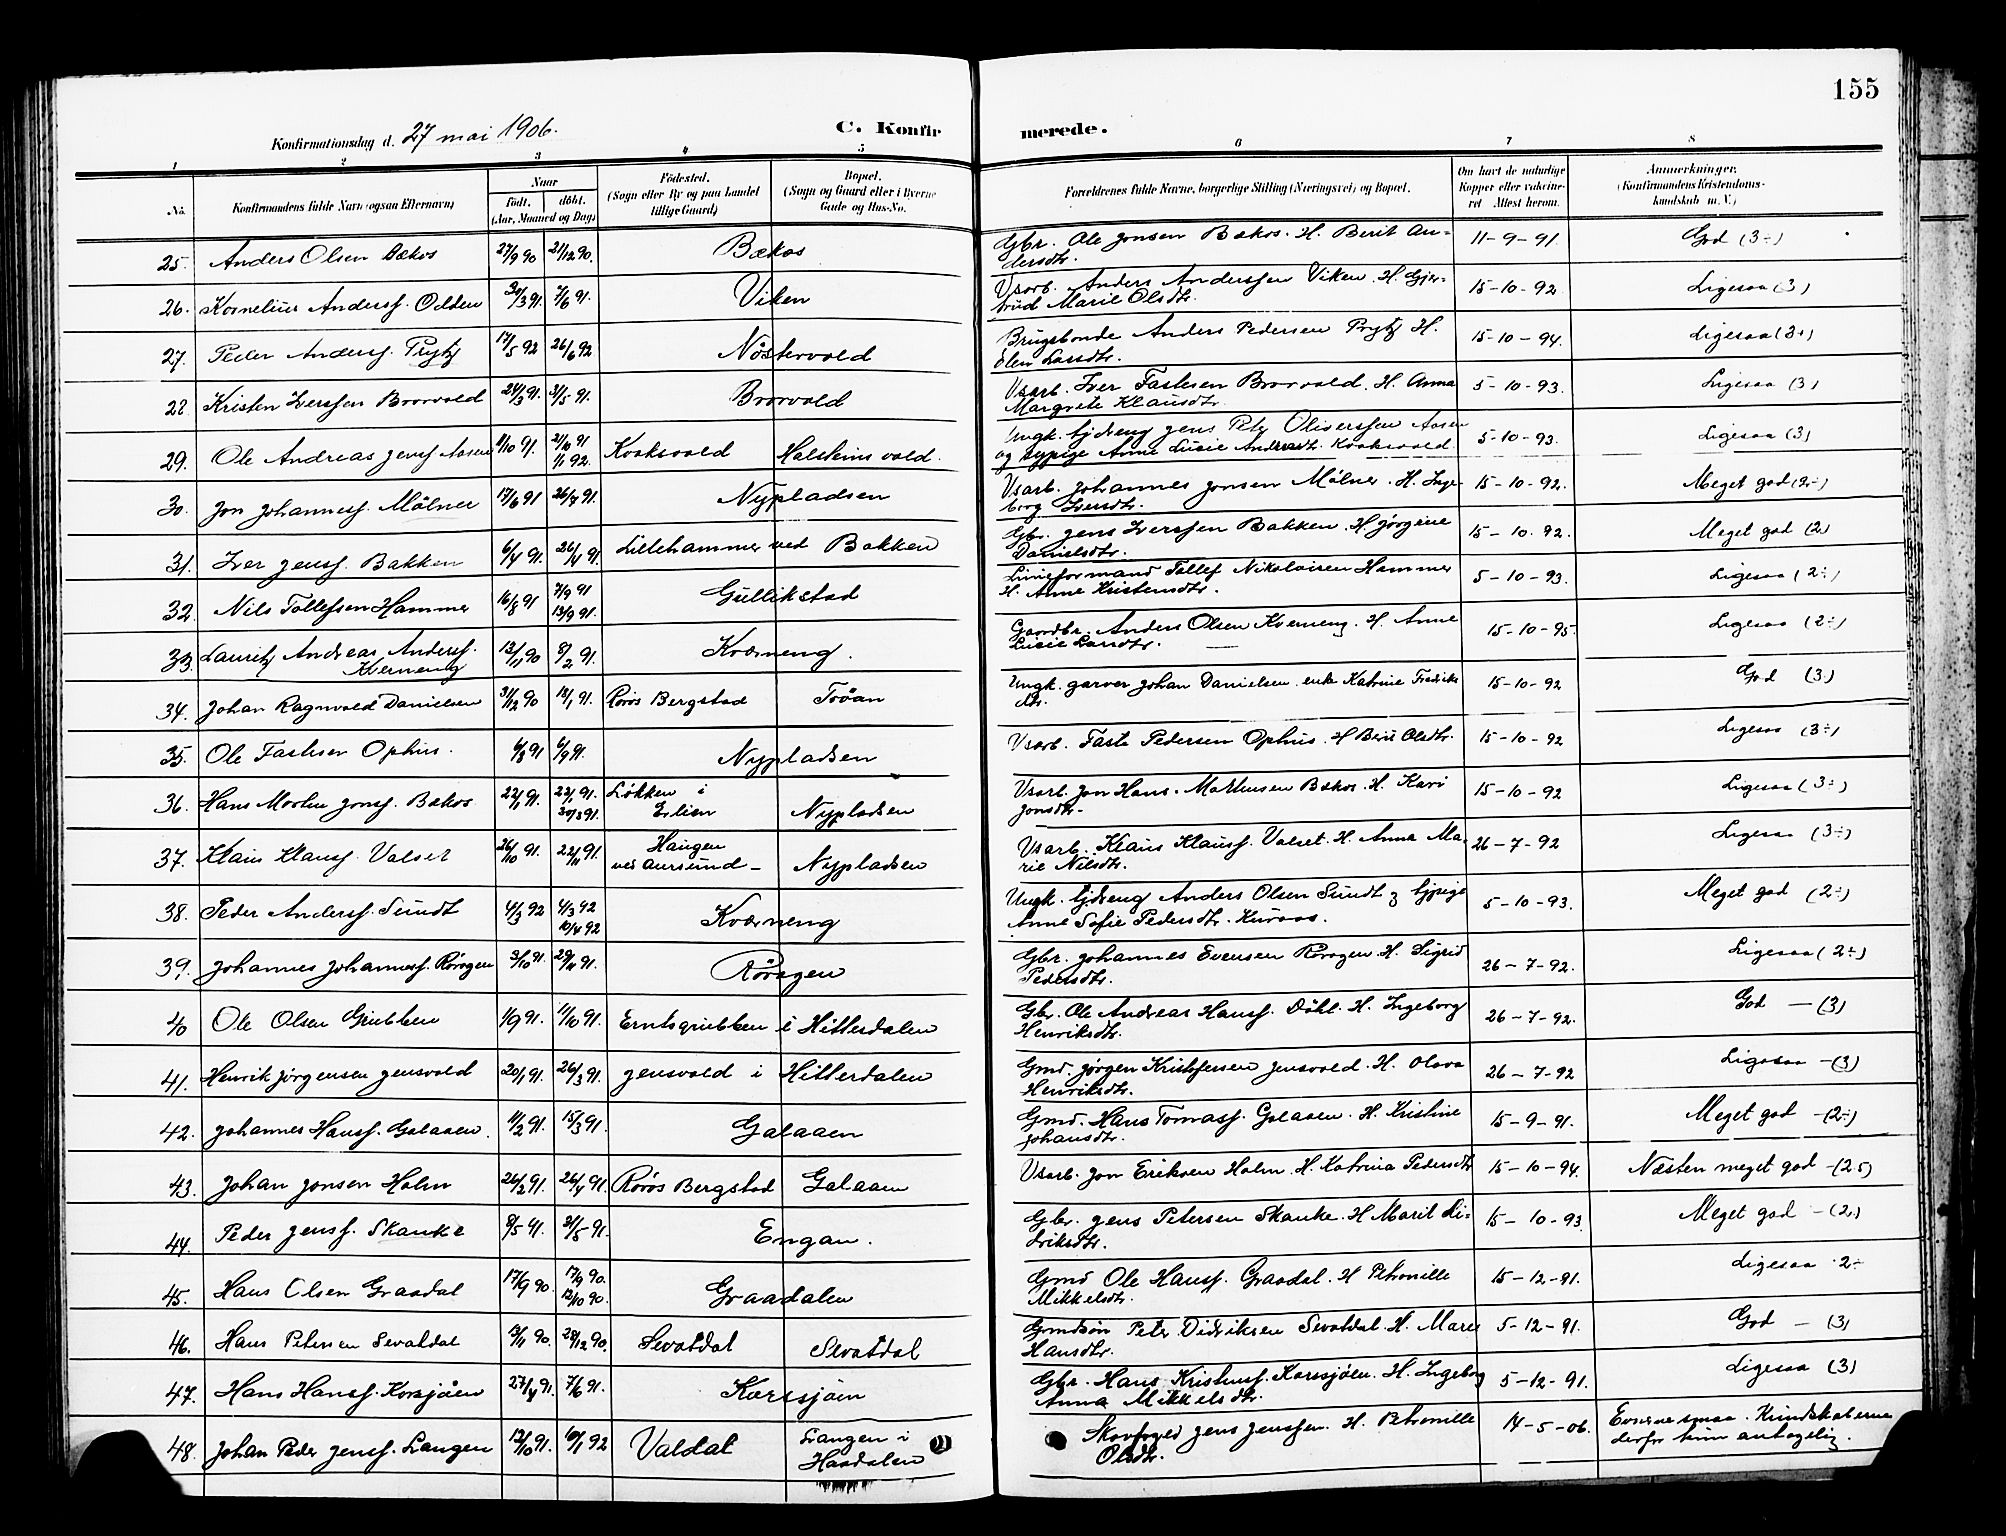 155
Konfirmationsdag d. 27 mai 1906. C. Konfirmerede.
1 2 3 4 5 6 7 8
No. Konfirmandens fulde Navn (ogsaa Efternavn) Naar født. døbt. (Aar, Maaned og Dag) Fødested. (Sogn eller By og paa Landet tillige Gaard) Bopæl. (Sogn og Gaard eller i Byerne Gade og Hus-No. Forældrenes fulde Navne, borgerlige Stilling (Næringsvei) og Bopæl. Om havt de naturlige Kopper eller vaccineret Attest herom. Anmerkninger. (Konfirmandens Kristendomskundskab m. V.)
25. Anders Olsen Bækos 27/9 90 21/12 90. Bækos Gbr. Ole Jonsen Bækos. H. Berit An-
dersdtr. 11-9-91. God (3÷)
26. Kornelius Andersf. Odden 30/3 91. 7/6 91. Viken Vsarb. Anders Anderssen Viken. H. Gjer-
trud Marie Olsdtr. 15-10-92. Ligesaa (3)
27. Peder Andersf. Prytz 17/5 92 26/6 92 Nöstervold Brugsbonde Anders Pedersen Prytz H.
Elen Larsdtr. 15-10-94. Ligesaa (3+)
28. Kristen Iverssen Brorvold 24/3 91. 31/5 91. Brorvold Vsarb. Iver Fastesen Brorvold. H. Anna
Margrete Klausdtr. 5-10-93. Ligesaa (3)
29. Ole Andreas Jensf. Aasen 1/10 91. 21/10 91
1/1 92. Kvaksvold Halsteinsvold. Ungk. tjdreng Jens Peter Oliverssen Aasen
og typige Anne Lucie Andersdt. Kvaksvold. 5-10-93. Ligesaa (3)
30. Jon Johannesf. Mölner 17/6 91 26/7 91. Nypladsen Vsarb. Johannes Jonsen Mölner. H. Inge-
borg Iversdtr. 15-10-92. Meget god (2÷)
31. Iver Jensf. Bakken 6/4 91. 26/4 91. Lillehammer ved Bakken Gbr. Jens Iverssen Bakken. H. Jörgine
Danielsdtr. 15-10-92. Meget god (2)
32. Nils Tollefsen Hammer 16/8 91 7/9 91
13/9 91. Gullikstad Linieformand Tollef Nikolaisen Hammer
H. Anne Kristensdtr. 5-10-93. Ligesaa (2÷)
33. Lauritz Andreas Andersf.
Kverneng 13/11 90 8/2 91. Kværneng. Gaardbr. Anders Olsen Kverneng. H. Anne
Lucie Larsdtr. 15-10-95. Ligesaa (2÷)
34. Johan Ragnvald Danielsen 31/12 90 18/1 91. Röros Bergstad Tröan Ungk. garver Johan Danielsen. enke Katrine Fredriks
dtr. 15-10-92 God (3)
35. Ole Fastesen Ophus. 6/8 91 6/9 91. Nypladsen Vsarb. Faste Pedersen Ophus. H Berit Olsdtr. 15-10-92 Ligesaa (3÷)
36. Hans Morten Jonsf. Bækos 22/1 91. 22/1 91.
30/3 91. Lökken i
Erlien Nypladsen Vsarb. Jon Hans. Mathusen Bækos. H. Kari
Jonsdtr. 15-10-92 Ligesaa (3÷)
37. Klaus Klausf. Valset 26/10 91. 22/11 91. Haugen
ved Aursund - Nypladsen Vsarb. Klaus Klausf. Valset. H. Anne Ma-
rie Nilsdtr. 26-7-92 Ligesaa (3÷)
38. Peder Andersf. Sundt 4/3 92 4/3 92
10/4 92 Kværneng Ungk. tjdreng Anders Olsen Sundt & tjpige
Anne Sofie Pedersdtr. Kuraas. 5-10-93. Meget god (2÷)
39. Johannes Johannesf. Rörosgen 3/10 91. 29/11 91. Rörosgen Gbr. Johannes Evensen Rörosgen. H. Sigrid
Pedersdtr. 26-7-92. Ligesaa (2÷)
40 Ole Olsen Grubben 1/9 91. 11/10 91. Erntsgrubben i Hitterdalen Gbr. Ole Andreas Hansf. Döhl. H. Ingeborg
Henriksdtr. 26-7-92. God - (3)
41. Henrik Jörgensen Jensvold 20/1 91. 26/3 91. Jensvold i Hitterdalen Gmd. Jörgen Kristofersen Jensvold. H. Olava
Henriksdtr. 26-7-92 Ligesaa - (3)
42. Johannes Hansf. Galaaen. 1/2 91. 15/3 91. Galaaen Gmd. Hans Tomasf. Galaaen. H. Kristine
Johansdtr. 15-9-91. Meget god - (2÷)
43. Johan Jonsen Holm 26/2 91. 26/4 91. Röros Bergstad Galaaen Vsarb. Jon Eriksen Holm. H. Katrina Pedersdtr 15-10-94. Næsten meget god - (2.5)
44. Peder Jensf. Skanke 8/5 91. 31/5 91. Engan. Gbr. Jens Petersen Skanke. H Marit Di-
driksdtr. 15-10-93 Meget god - (2.)
45. Hans Olsen Graadal 17/9 90. 17/9 90.
12/10 90. Graadalen Gmd Ole Hansf. Graadal. H Petronille
Mikkelsdtr. 15-12-91. Ligesaa 2÷
46. Hans Petersen Sevatdal 13/11 90. 28/12 90. Sevatdal Sevatdal Gmdsön Peter Didriksen Sevatdal. H. Mare
Hansdtr. 5-12-91. God - (3)
47. Hans Hansf. Korsjöen 27/4 91. 7/6 91. Korssjöen Gbr. Hans Kristensf. Korssjöen. H. Ingeborg
Anna Mikkelsdtr. 5-12-91. Ligesaa (3)
48. Johan Peder Jensf. Langen 12/10 91. 6/1 92 Valdal Langen i
Haadalen Skovfoged Jens Jenssen. H. Petronille
Olsdtr. 14-5-06. Evnerne smaa. Kundskaberne
derfor kun antagelig.